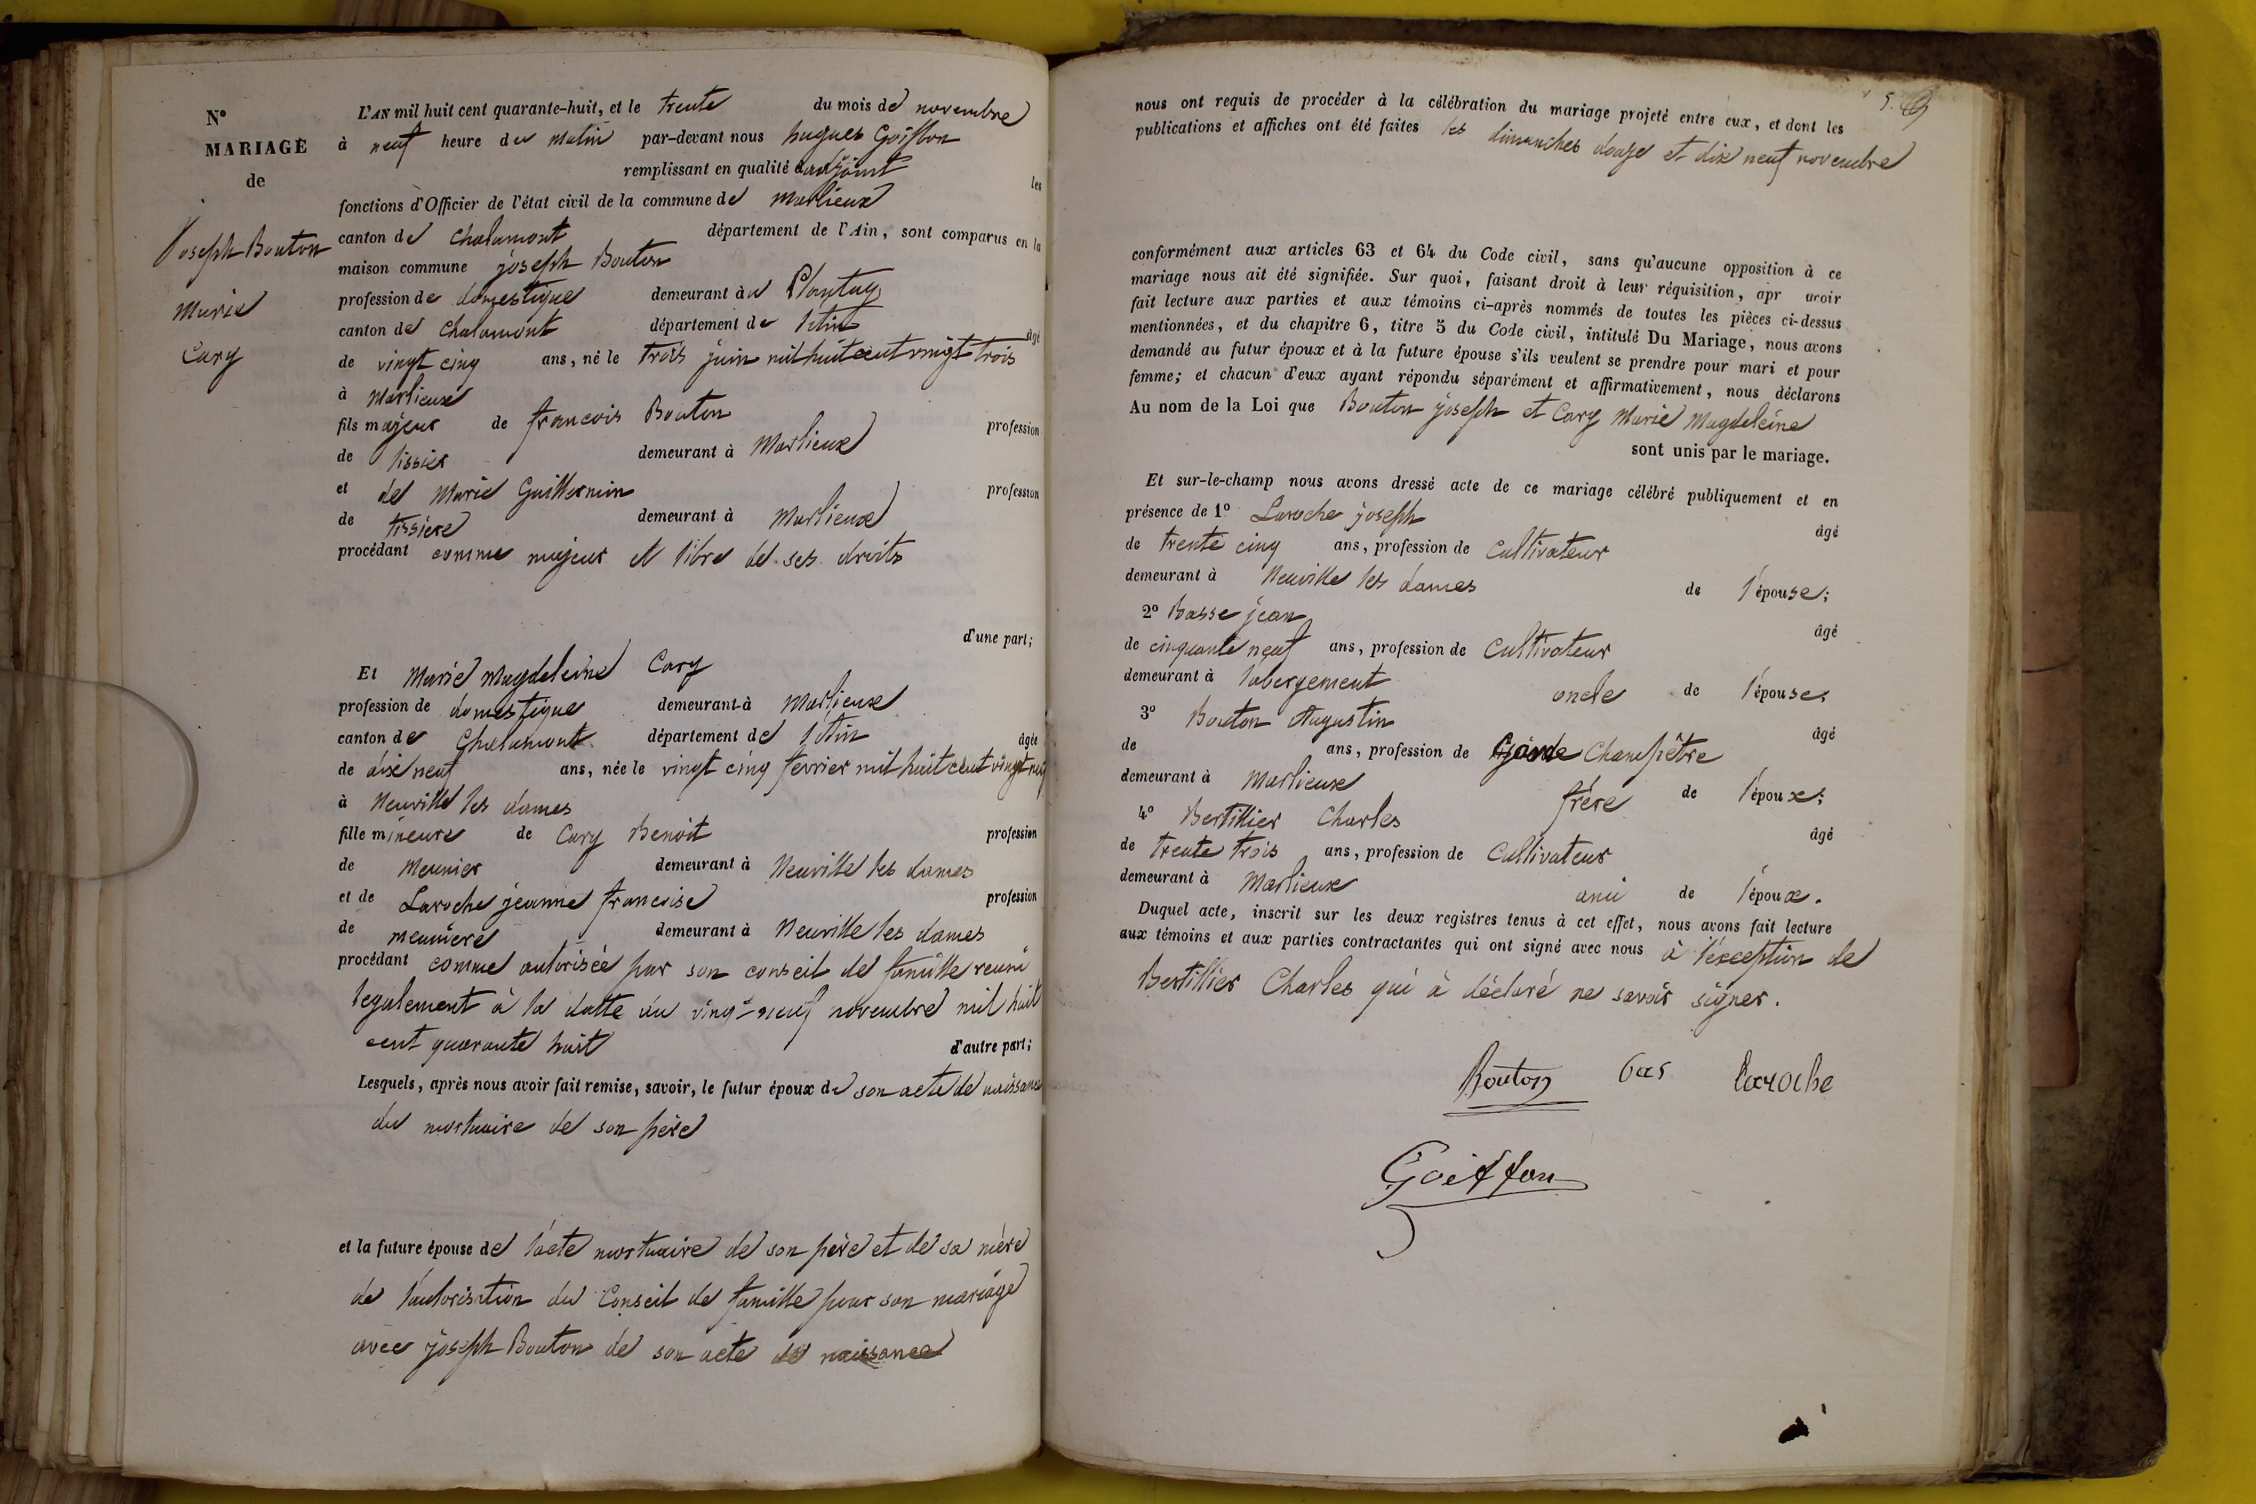 N°
MARIAGE
de
Joseph Bouton
Marie
Cary
L'AN mil huit cent quarante-huit, et le trente du mois de novembre
à neuf heure du matin par-devant nous hugues Goiffon
remplissant en qualité d'adjoint les
fonctions d'Officier de l'état civil de la commune de Marlieux
canton de Chalamont département de l'Ain, sont comparus en la
maison commune joseph Bouton
profession de domestique demeurant à Plantay
canton de Chalamont département de l'Ain âgé
de vingt cinq ans, né le trois juin mil huit cent vingt trois
à Marlieux
fils majeur de francois Bouton profession
de tissier demeurant à Marlieux
et de Marie Guillermin profession
de tissière demeurant à Marlieux
procédant comme majeur et libre de ses droits
d'une part;
Et Marie Magdeleine Cary
profession de domestique demeurant à Marlieux
canton de Chalamont département de l'Ain âgée
de dix neuf ans, née le vingt cinq fevrier mil huit cent vingt neuf
à Neuville les dames
fille mineure de Cary Benoit profession
de Meunier demeurant à Neuville les dames
et de Laroche jeanne francoise profession
de meunière demeurant à Neuville les dames
procédant comme autorisée par son conseil de famille reuni
legalement à la datte du vingt-neuf novembre mil huit
cent quarante huit d'autre part;
Lesquels, après nous avoir fait remise, savoir, le futur époux de son acte de naissance
du mortuaire de son père
et la future épouse de l'acte mortuaire de son père et de sa mère
de l'autorisation du Conseil de famille pour son mariage
avec joseph Bouton de son acte de naissance
5.
nous ont requis de procéder à la célébration du mariage projeté entre eux, et dont les
publications et affiches ont été faites les dimanches douze et dix neuf novembre
conformément aux articles 63 et 64 du Code civil, sans qu'aucune opposition à ce
mariage nous ait été signifiée. Sur quoi, faisant droit à leur réquisition, apr avoir
fait lecture aux parties et aux témoins ci-après nommés de toutes les pièces ci-dessus
mentionnées, et du chapitre 6, titre 5 du Code civil, intitulé Du Mariage, nous avons
demandé au futur époux et à la future épouse s'ils veulent se prendre pour mari et pour
femme; et chacun d'eux ayant répondu séparément et affirmativement, nous déclarons
Au nom de la Loi que Bouton joseph et Cary Marie Magdeleine
sont unis par le mariage.
Et sur-le-champ nous avons dressé acte de ce mariage célébré publiquement et en
présence de 1° Laroche joseph âgé
de trente cinq ans, profession de Cultivateur
demeurant à Neuville les dames de l'épouse;
2° Basse jean âgé
de cinquante neuf ans, profession de Cultivateur
demeurant à labergement oncle de l'épouse;
3° Bouton Augustin âgé
de ans, profession de Garde Champêtre
demeurant à Marlieux frère de l'époux;
4° Bertillier Charles âgé
de trente trois ans, profession de Cultivateur
demeurant à Marlieux ami de l'époux.
Duquel acte, inscrit sur les deux registres tenus à cet effet, nous avons fait lecture
aux témoins et aux parties contractantes qui ont signé avec nous à l'exception de
Bertillier Charles qui à déclaré ne savoir signer.
Bouton bas laroche
Goiffon